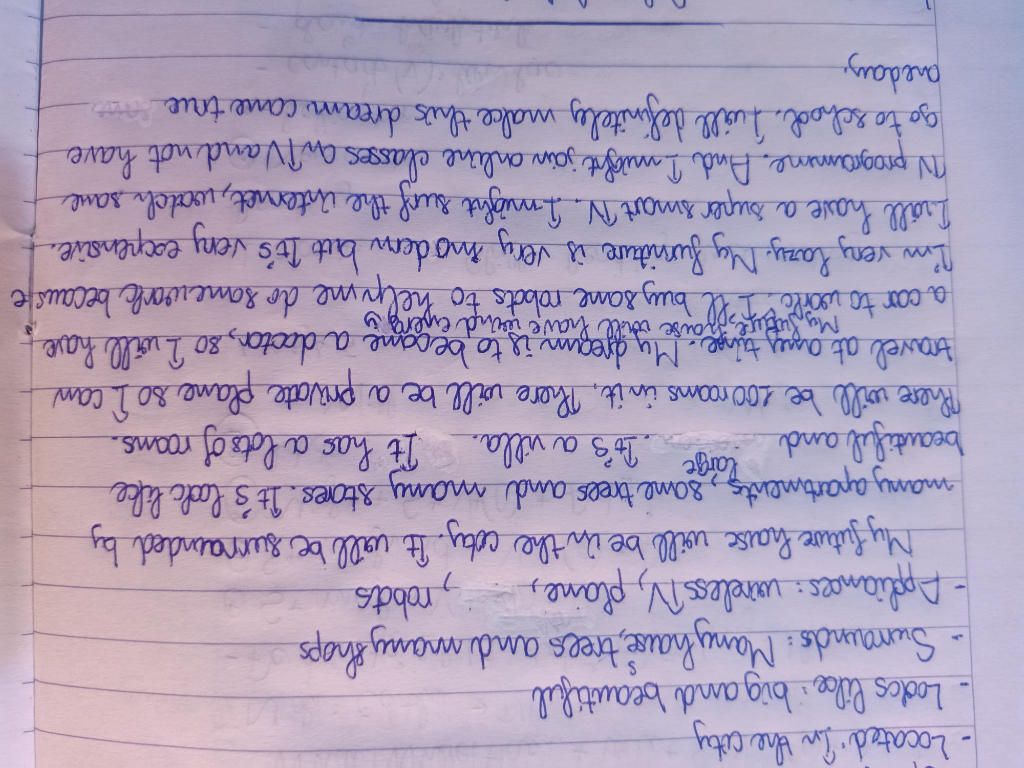 - Located: In the city
- Looks like: big and beautiful
- Surrounds: Many houses, trees and many shops
- Appliances: wireless TV, plane, , robots
My future house will be in the city. It will be surrounded by
many apartments, some trees and many stores. It's look like
beautiful and large. It's a villa. It has a lots of rooms.
There will be 100 rooms in it. There will be a private plane so I can
travel at any time. My dream is to become a doctor, so I will have
My future house will have wind energy
a car to work. I'll buy some robots to help me do some work because
I'm very lazy. My furniture is very modern but It's very expensive.
I will have a super smart TV. I might surf the internet, watch some
TV programme. And I might join online classes on TV and not have
go to school. I will definitely make this dream come true
one day.